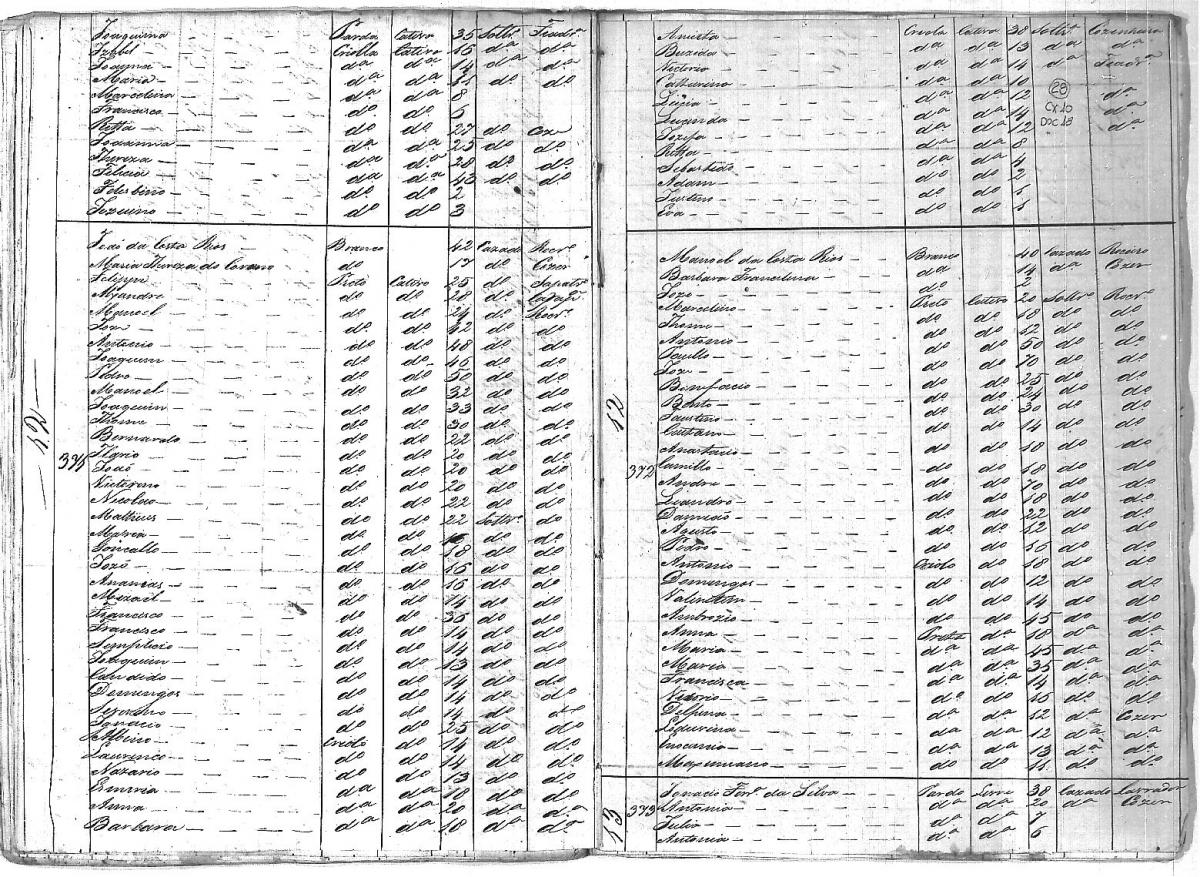 Joaquina Parda Cativa 35 Soltrª Fiadrª
Izabel Criolla Cativa 16 dª dª
Joanna dª dª 14 dª dª
Maria dª dª 11 dº dº
Marcelina dª dª 8
Francisco dº dº 5
Ritta dº dº 27 do Coze
Joaquina dª dª 25 do do
Thereza dª dª 28 dº dº
Felicia dª dª 43 dº dº
dº dº 2
dº dº 3
João da Costa Rios Branco 42 Cazado Rocrº
Maria Thereza do do 17 dº Cozer
Felippe Preto Cativo 25 dº Sapatrº
do dº 28 do
Manoel dº dº 24 do Rocrº
Joze do dº 42 do do
Antonio do dº 48 do do
Joaquim do dº 46 do do
Pedro dº dº 50 do do
Manoel dº dº 32 do do
Joaquim dº do 33 do do
Thome do do 30 do do
Bernardo do do 22 do do
do do 20 do do
João do do 20 do dº
Victorino do do 20 do dº
Nicolao do do 22 do dº
Matheus do do 22 Soltrº do
do do do do
Goncallo dº do 18 do do
Jozé do do 16 do do
Ananias do do 16 do do
Mizael do do 14 do do
Francisco do do 35 do do
Francisco do do 14 do do
Simplicio do do 14 do do
Joaquim do do 13 do do
Candido do do 14 do do
Demingos do do 14 do dº
do do 14 do do
Ignacio do d 25 do do
Albino Criolo do 14 do do
Laurenco do do 14 do do
Nazario do do 13 do do
dª dª 18 do do
Anna dª dª 20 dª dª
Barbara dª dª 18 dª do
12
371
Criola Cativa 38 Soltrª Cozenheira
dª dª 13 dª dª
dª dª 14 dª Fiadrª
Catherina dª dª 10
Lucia dª dª 12 dª
Lucinda dª dª 14 dª
Jozefa dª dª 12 dª
Ritta dª dª 8
Sebastião do do 4
Adam do do 2
do do 1
Eva do do 1
28
CX 10
DOC 18
Manoel da Costa Rios Branco 40 Cazado Roceiro
Barbara Francelina dª 14 dª Cozer
Joze dº 2
Marcelino Preto Cativo 20 Soltrº Rocrº
Thome do do 18 do do
Antonio do do 52 do do
Paullo do do 50 do dº
Joze do do 70 do do
Bonifacio do do 25 do do
Bento do do 24 do do
Faustino do do 30 do do
do do 14 do dº
Anastacio do do 18 do do
Camillo do do 18 do do
Andre do do 70 do do
Leandro do do 18 do dº
Damião do do 22 do do
do do 52 do do
Pedro do do 16 do do
Antonio Criolo do 18 do do
Demingos do do 12 do dº
Valentim do do 14 do do
Ambrozio do do 45 do do
Anna Preta dª 18 dª dª
Maria dª dª 45 dª dª
Maria dª dª 35 dª dª
Francisca dª dª 14 dª dª
do do 15 do dº
Delfina dª dª 12 dª Cozer
dª dª 12 dª dª
do do 13 dª dª
do do 11 do do
12
372
Ignacio Ferrª da Silva Pardo Livre 38 Cazado Lavrador
Antonia dª dª 20 dª Cozer
Julia dª dª 7
Antonia dª dª 6
13
373